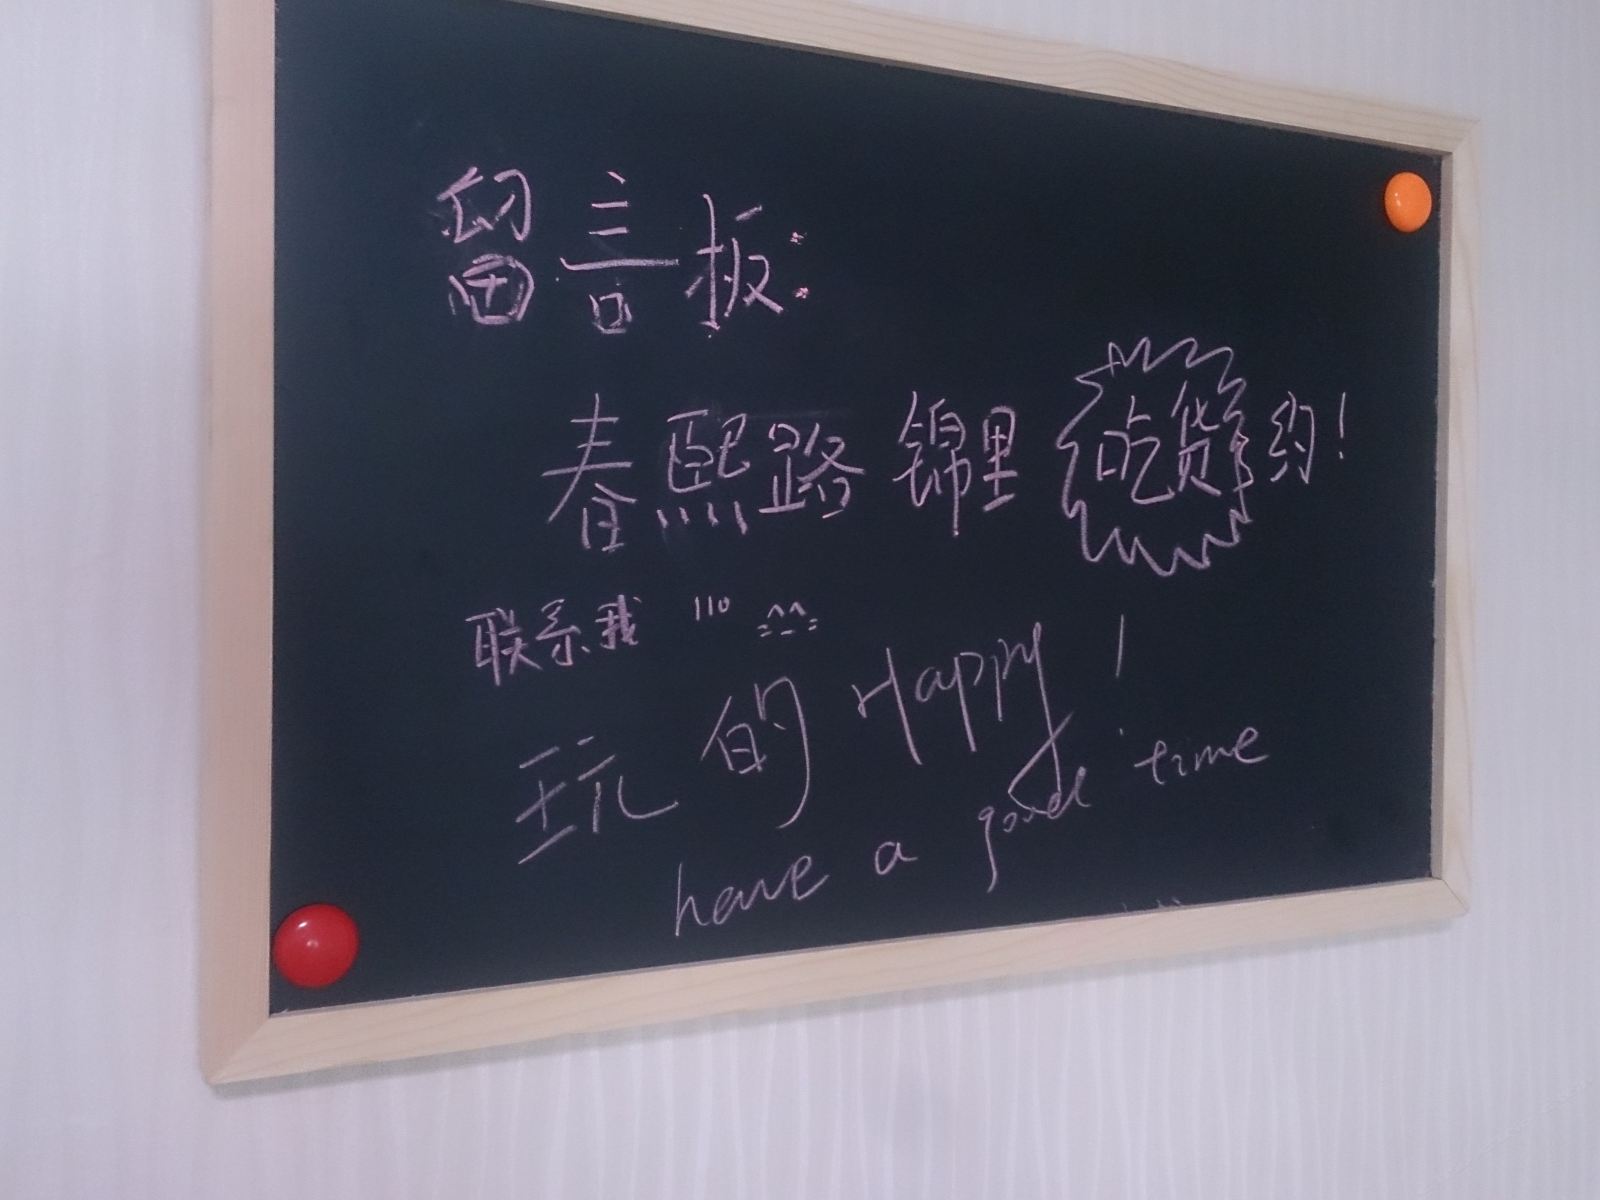 留言板:
春熙路 锦里 吃货 约!
联系我 110 =^_^=
玩的Happy!
have a good time